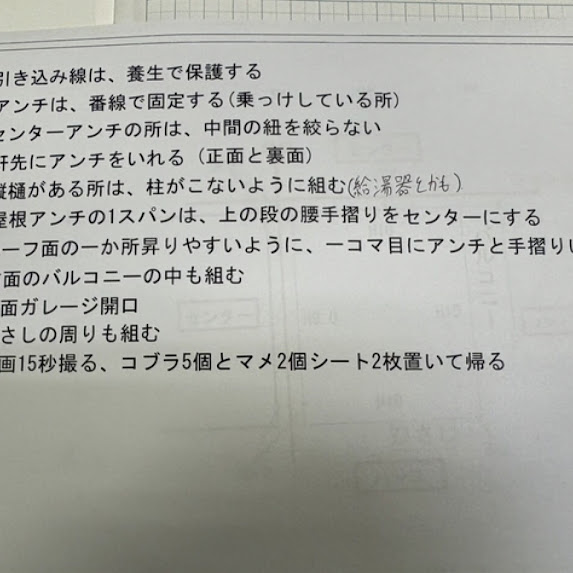 引き込み線は、養生で保護する
アンチは、番線で固定する(乗っけしている所)
センターアンチの所は、中間の紐を絞らない
軒先にアンチをいれる (正面と裏面)
縦樋がある所は、柱がこないように組む(給湯器とかも)
屋根アンチの1スパンは、上の段の腰手摺りをセンターにする
ーフ面の一か所昇りやすいように、一コマ目にアンチと手摺り
面のバルコニーの中も組む
面ガレージ開口
さしの周りも組む
画15秒撮る、コブラ5個とマメ2個シート2枚置いて帰る